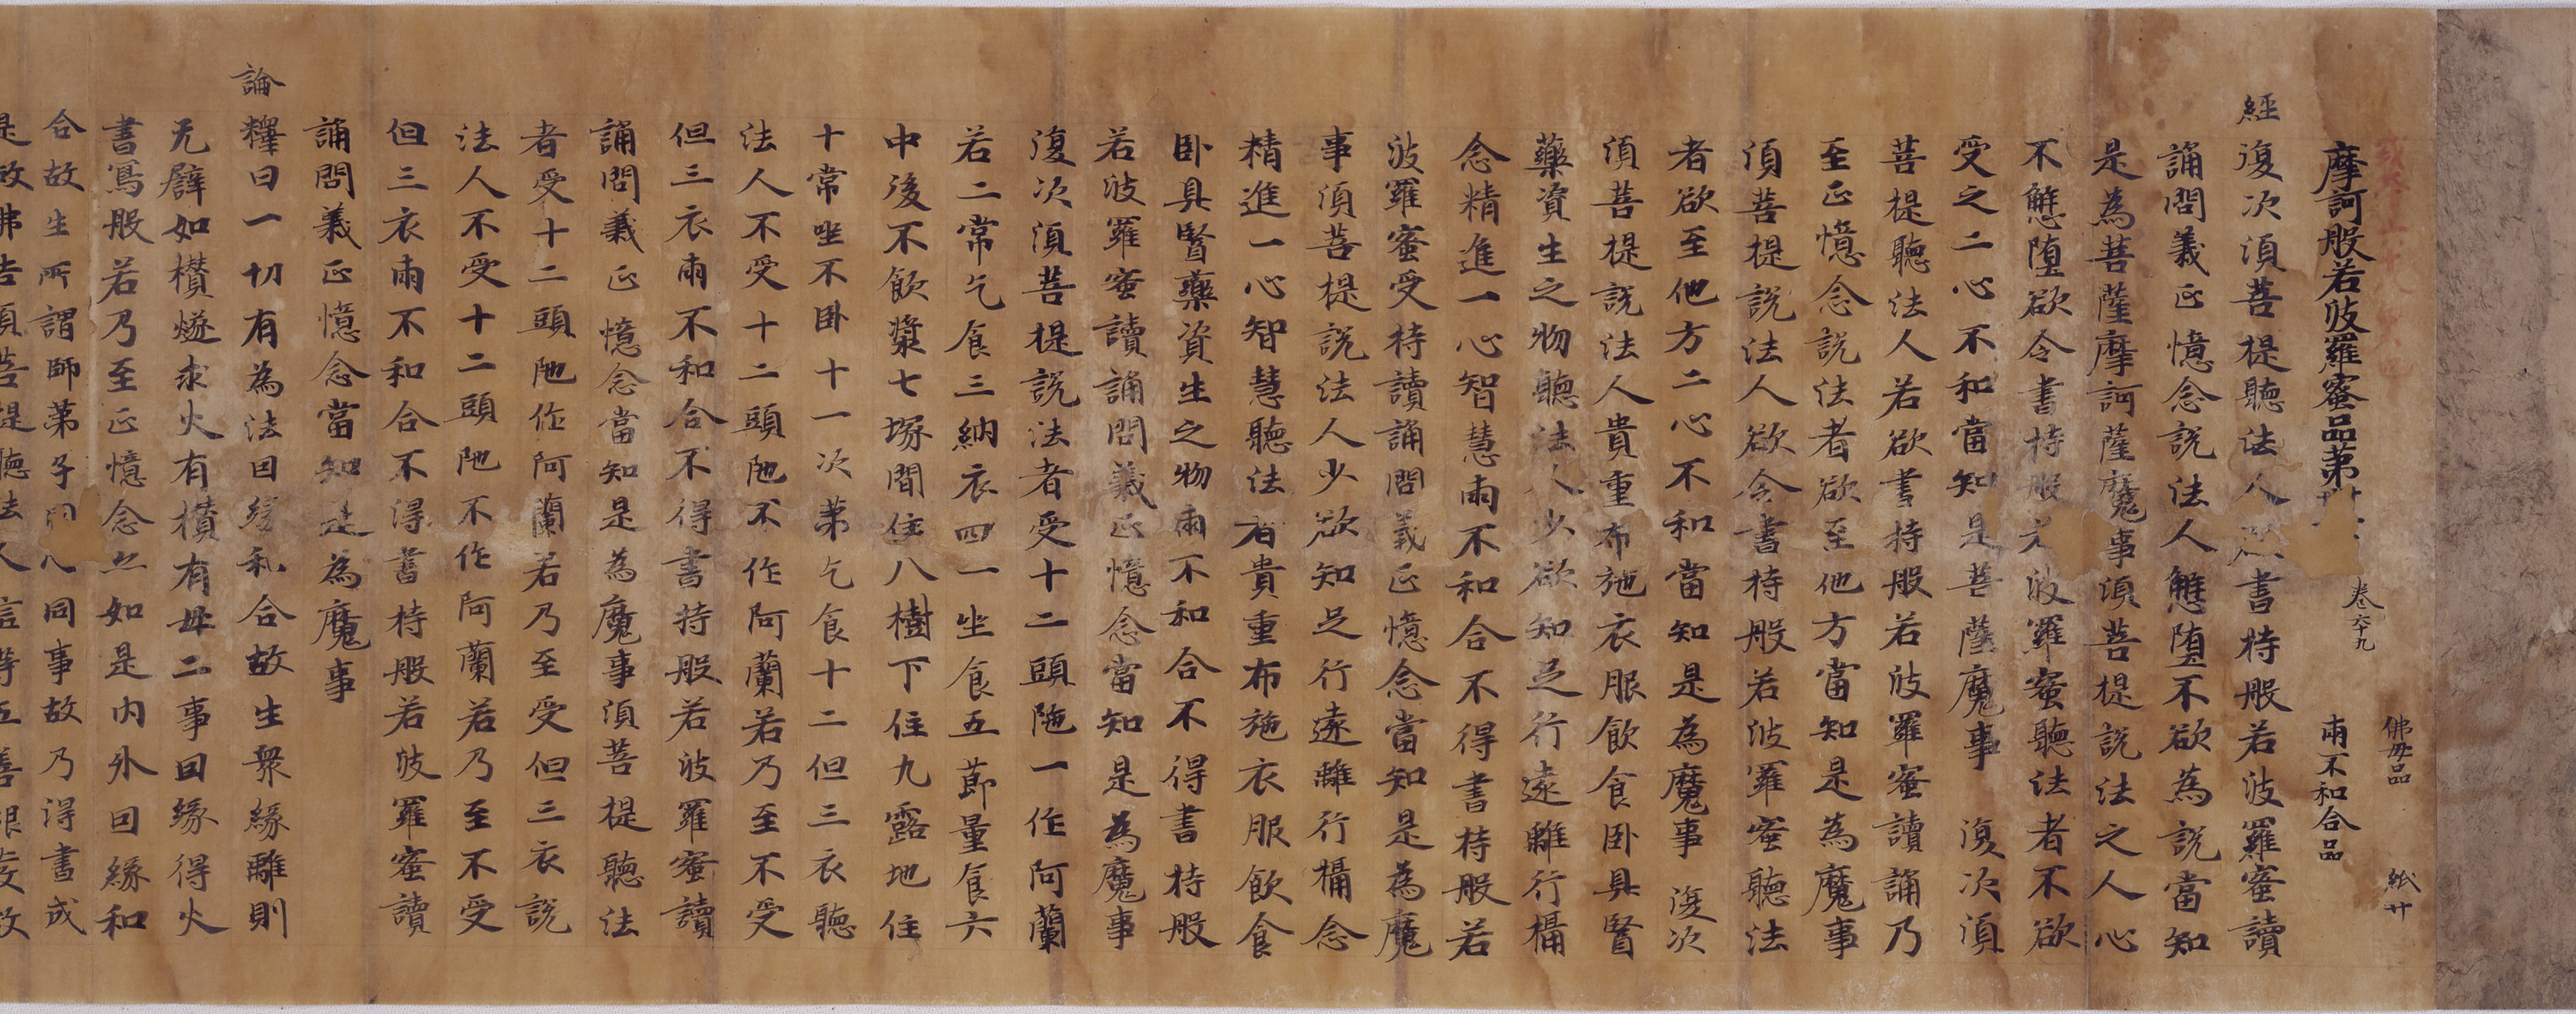 摩訶般若波羅蜜品第卌
卷六十九
佛母品
兩不和合品
紙廿
經
復次須菩提聽法人欲書持般若波羅蜜讀
誦問義正憶念說法人懈墮不欲為說當知
是為菩薩摩訶薩魔事須菩提說法之人心
不懈墮欲令書持般若波羅蜜聽法者不欲
受之二心不和當知是菩薩魔事 復次須
菩提聽法人若欲書持般若波羅蜜讀誦乃
至正憶念說法者欲至他方當知是為魔事
須菩提說法人欲令書持般若波羅蜜聽法
者欲至他方二心不和當知是為魔事 復次
須菩提說法人貴重布施衣服飲食臥具醫
藥資生之物聽法人少欲知足行遠離行攝
念精進一心智慧兩不和合不得書持般若
波羅蜜受持讀誦問義正憶念當知是為魔
事須菩提說法人少欲知足行遠離行攝念
精進一心智慧聽法者貴重布施衣服飲食
臥具醫藥資生之物兩不和合不得書持般
若波羅蜜讀誦問義正憶念當知是為魔事
復次須菩提說法者受十二頭陁一作阿蘭
若二常乞食三納衣四一坐食五節量食六
中後不飲漿七塚間住八樹下住九露地住
十常坐不臥十一次第乞食十二但三衣聽
法人不受十二頭陁不作阿蘭若乃至不受
但三衣兩不和合不得書持般若波羅蜜讀
誦問義正憶念當知是為魔事須菩提聽法
者受十二頭陁作阿蘭若乃至受但三衣說
法人不受十二頭陁不作阿蘭若乃至不受
但三衣兩不和合不得書持般若波羅蜜讀
誦問義正憶念當知是為魔事
論
釋曰一切有為法因緣和合故生眾緣離則
无譬如攢燧求火有攢有母二事因緣得火
書寫般若乃至正憶念亦如是內外因緣和
合故生所謂師弟子同心同事故乃得書成
是故佛告須菩提聽法人言等五善根發故